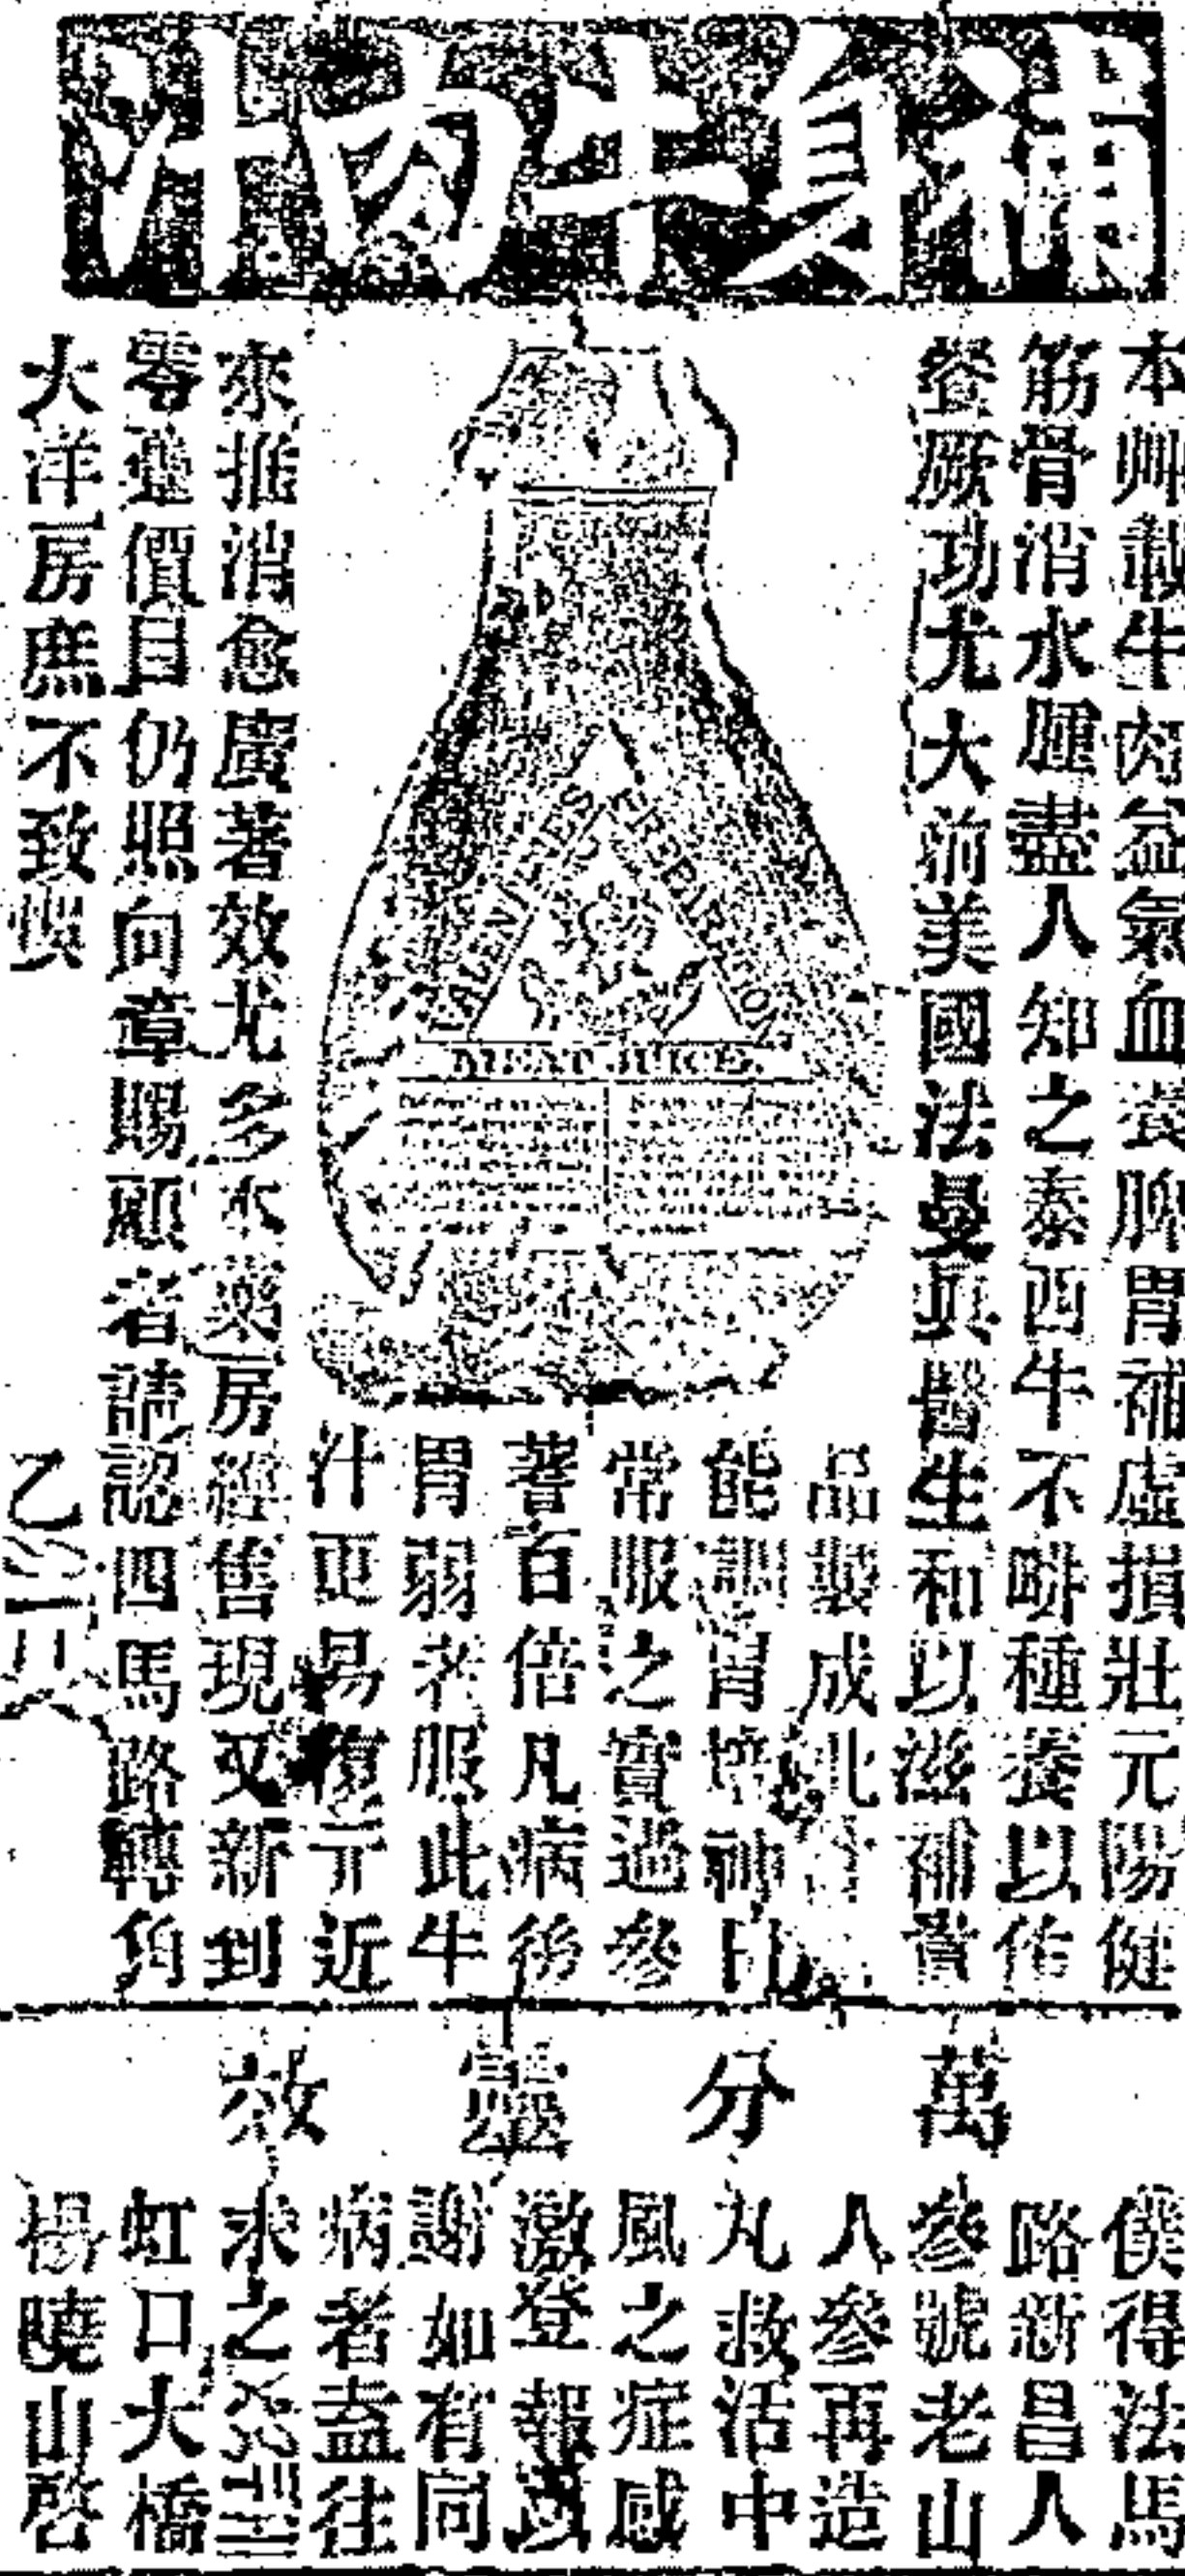 補身牛肉汁
本艸載牛肉益氣血養脾胃補虛損壯元陽健
筋骨消水腫盡人知之泰西牛不耕種養以作
餐厥功尤大前美國法曼真醫生和以滋補
品製成此汁
能調胃培神比
常服之實過參
蓍百倍凡病後
胃弱者服此牛
汁更易復元近
來推消愈廣著效尤多本藥房經售現又新到
零躉價目仍照向章賜顧者請認四馬路轉角
大洋房庶不致悞
VALENTINE'S PREPARATION
MEAT JUICE.
萬分靈效
僕得法馬
路新昌人
參號老山
人參再造
丸救活中
風之症感
激登報以
謝如有同
病者盍往
求之
虹口大橋
楊曉山啓